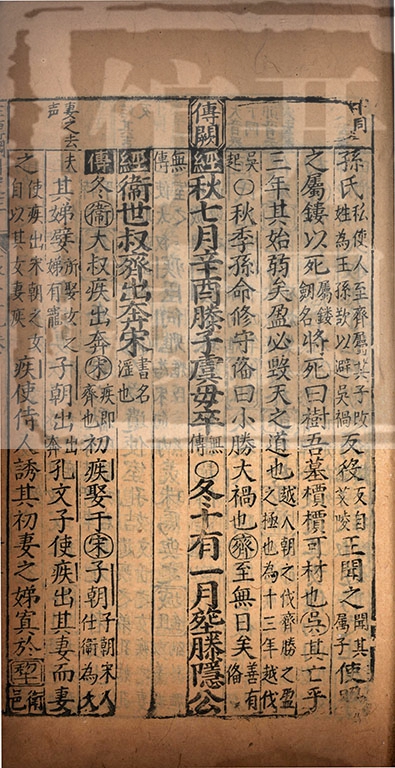 孫氏私使人至齊屬其子改姓為王孫欲以辟吳禍反役反自艾陵王聞之聞其屬子使
之屬鏤以死屬鏤劔名將死曰樹吾墓檟檟可材也吳其亡乎
三年其始弱矣盈必毀天之道也越人朝之伐齊勝之盈之極也為十三年越伐
吳起○秋季孫命修守俻曰小勝大禍也齊至無日矣善有俻
傳闕經秋七月辛酉滕子虞毋卒無傳○冬十有一月葬滕隱公
無傳經衛世叔齊出奔宋書名淫也
傳冬衛大叔疾出奔宋疾即齊也初疾娶于宋子朝子朝宋人仕衛為大
妻之去声
夫其娣嬖所娶女之娣有寵子朝出出奔孔文子使疾出其妻而妻
之使疾出宋朝之女自以其女妻疾疾使侍人誘其初妻之娣寘於犂衛邑